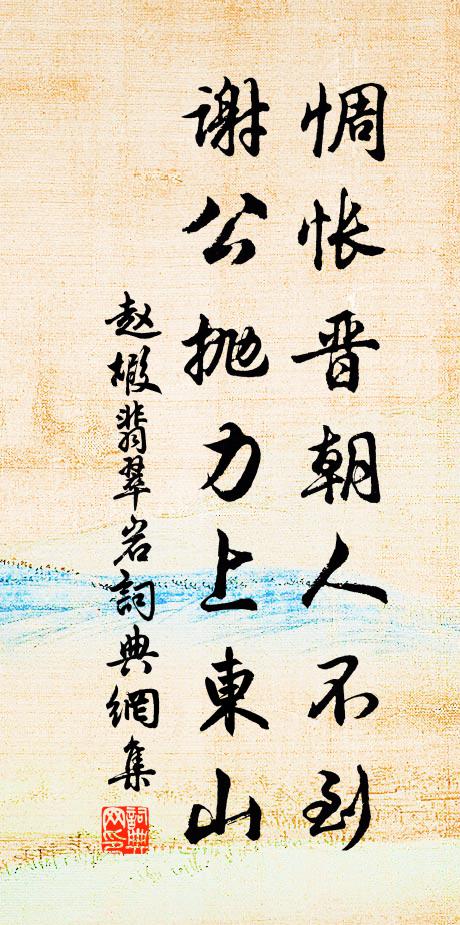 惆怅晋朝人不到
谢公抛力上東山
赵椵翡翠岩詞典網集
詞典网印